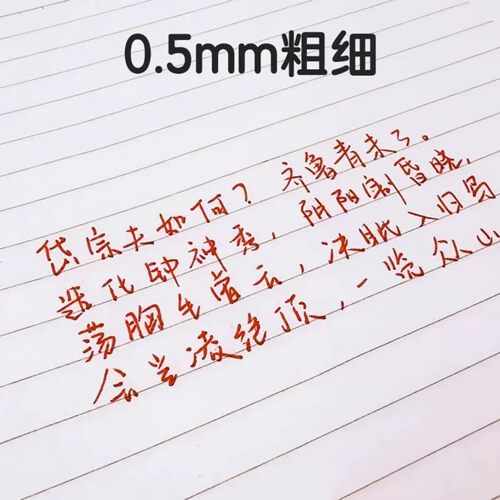 0.5mm粗细
岱宗夫如何？齐鲁青未了。
造化钟神秀，阴阳割昏晓，
荡胸生曾云，决眦入归鸟
会当凌绝顶，一览众山